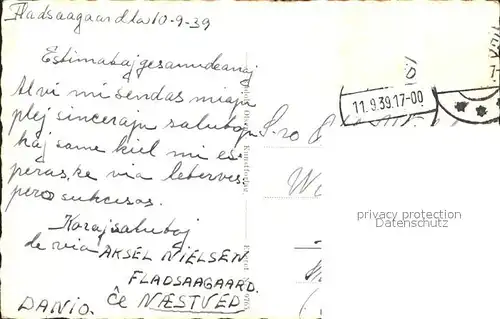 Fladsaagaard la 10-9-39
Estimataj gesamideanoj
Al vi mi sendas miajn
plej sincerajn salutojn
kaj same kiel mi es-
peras, ke via
sukcesas.
Koraj salutoj
de via AKSEL NIELSEN
FLADSAAGAARD.
ĈE NÆSTVED
DANIO.
11.9.39.17-00
S-ro
privacy protection
Datenschutz